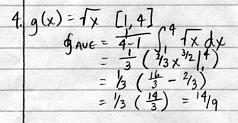 4. g(x) = √x [1,4]
g AVE = 1/(4-1) ∫₁⁴ √x dx
= 1/3 ( 2/3 x^3/2 |₁⁴ )
= 1/3 ( 16/3 - 2/3 )
= 1/3 ( 14/3 ) = 14/9